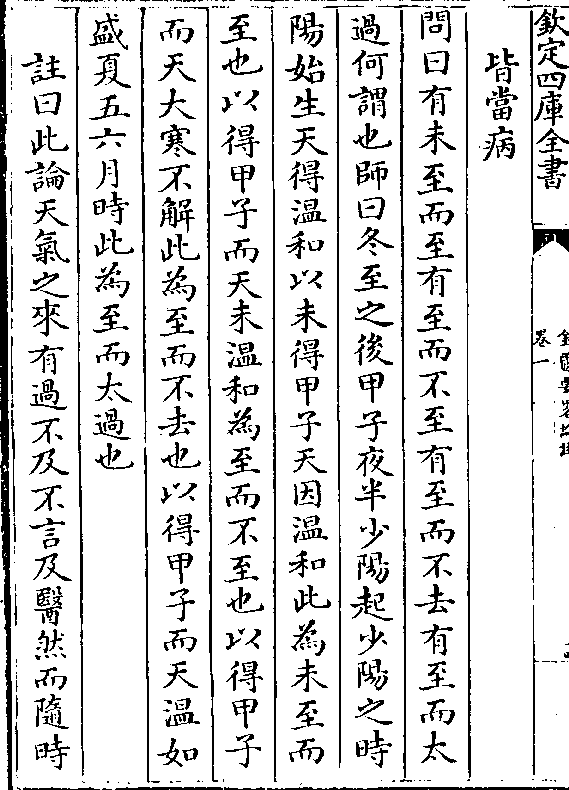 欽定四庫全書
卷一
皆當病
問曰有未至而至有至而不至有至而不去有至而太
過何謂也師曰冬至之後甲子夜半少陽起少陽之時
陽始生天得温和以未得甲子天因温和此為未至而
至也以得甲子而天未温和為至而不至也以得甲子
而天大寒不解此為至而不去也以得甲子而天温如
盛夏五六月時此為至而太過也
註曰此論天氣之來有過不及不言及醫然而隨時